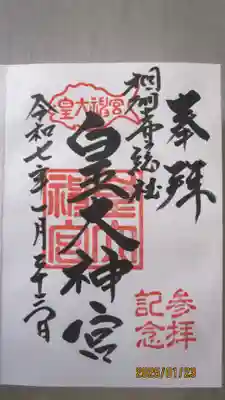 奉拝
相州亀井野総社
皇大神宮
皇大神宮
令和七年一月二十三日
参拝
記念
2025/01/23